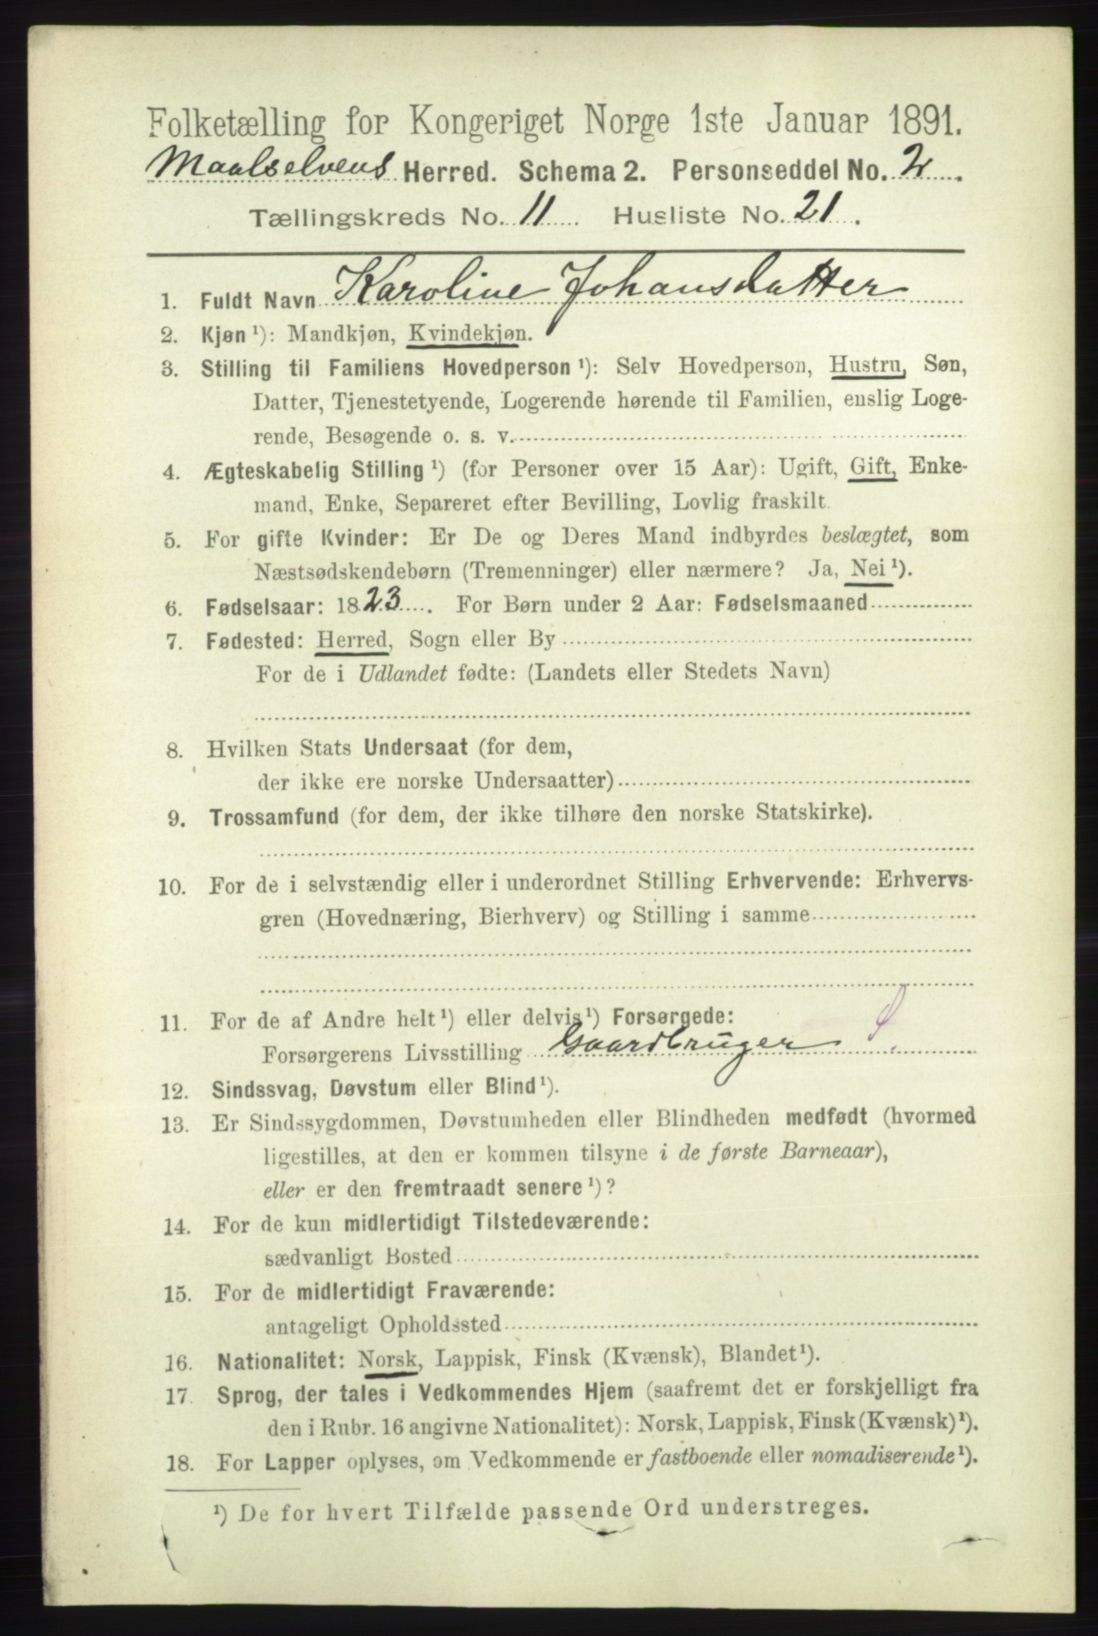 Folketælling for Kongeriget Norge 1ste Januar 1891.
Maalselvens Herred. Schema 2. Personseddel No. 2.
Tællingskreds No. 11 Husliste No. 21.
1. Fuldt Navn Karoline Johansdatter
2. Kjøn ¹): Mandkjøn, Kvindekjøn.
3. Stilling til Familiens Hovedperson ¹): Selv Hovedperson, Hustru, Søn,
Datter, Tjenestetyende, Logerende hørende til Familien, enslig Loge-
rende, Besøgende o. s. v.
4. Ægteskabelig Stilling ¹) (for Personer over 15 Aar): Ugift, Gift, Enke-
mand, Enke, Separeret efter Bevilling, Lovlig fraskilt.
5. For gifte Kvinder: Er De og Deres Mand indbyrdes beslægtet, som
Næstsødskendebørn (Tremenninger) eller nærmere? Ja, Nei ¹).
6. Fødselsaar: 1823. For Børn under 2 Aar: Fødselsmaaned
7. Fødested: Herred, Sogn eller By
For de i Udlandet fødte: (Landets eller Stedets Navn)
8. Hvilken Stats Undersaat (for dem,
der ikke ere norske Undersaatter)
9. Trossamfund (for dem, der ikke tilhøre den norske Statskirke).
10. For de i selvstændig eller i underordnet Stilling Erhvervende: Erhvervs-
gren (Hovednæring, Bierhverv) og Stilling i samme
11. For de af Andre helt ¹) eller delvis ¹) Forsørgede:
Forsørgerens Livsstilling Gaardbruger
12. Sindssvag, Døvstum eller Blind ¹).
13. Er Sindssygdommen, Døvstumheden eller Blindheden medfødt (hvormed
ligestilles, at den er kommen tilsyne i de første Barneaar),
eller er den fremtraadt senere ¹)?
14. For de kun midlertidigt Tilstedeværende:
sædvanligt Bosted
15. For de midlertidigt Fraværende:
antageligt Opholdssted
16. Nationalitet: Norsk, Lappisk, Finsk (Kvænsk), Blandet ¹).
17. Sprog, der tales i Vedkommendes Hjem (saafremt det er forskjelligt fra
den i Rubr. 16 angivne Nationalitet): Norsk, Lappisk, Finsk (Kvænsk) ¹).
18. For Lapper oplyses, om Vedkommende er fastboende eller nomadiserende ¹).
¹) De for hvert Tilfælde passende Ord understreges.